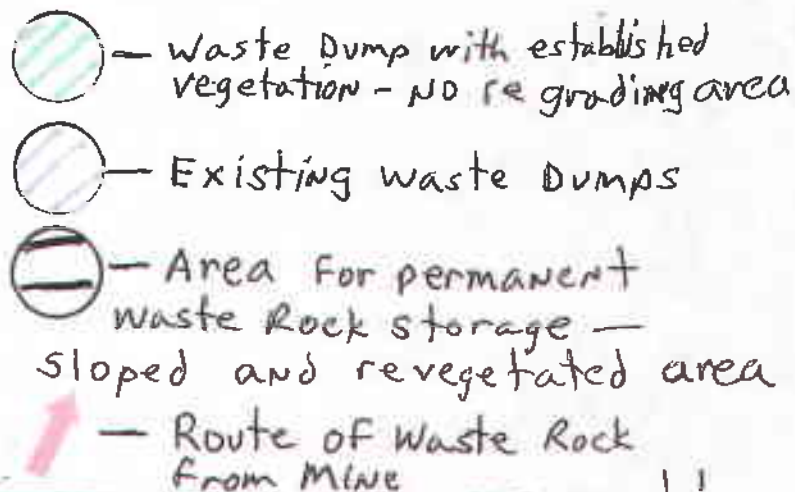 — Waste Dump with established
vegetation - NO re grading area
— Existing Waste Dumps
— Area for permanent
Waste Rock storage —
sloped and revegetated area
— Route of Waste Rock
from Mine